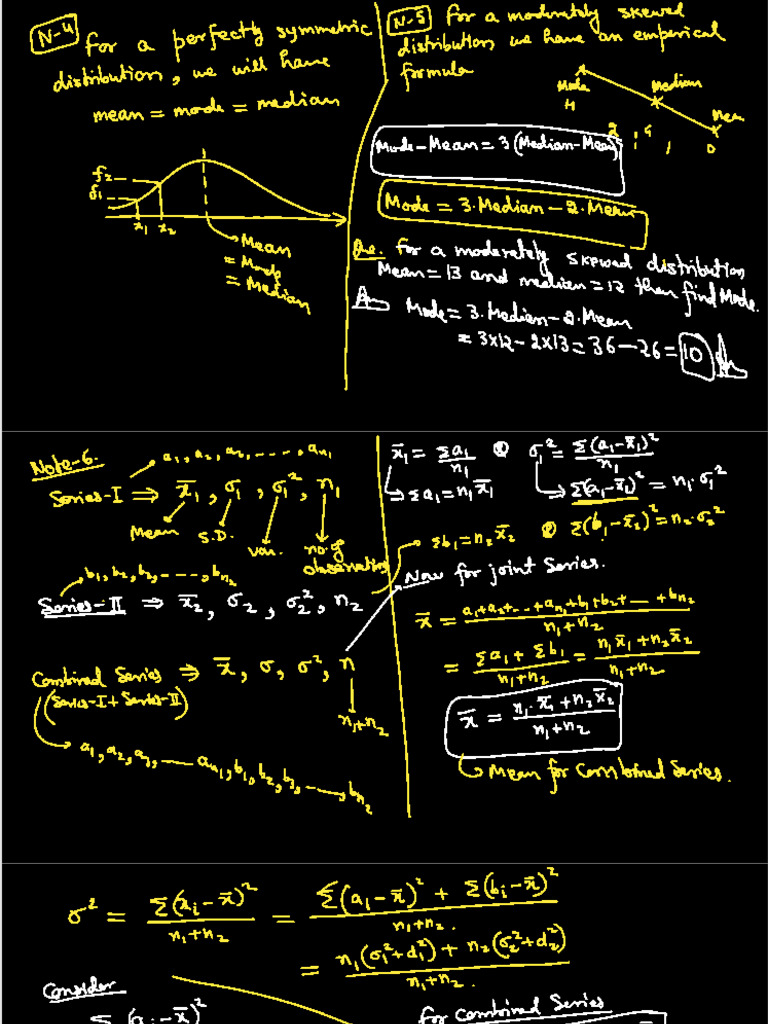 N-4
For a perfectly symmetric
distribution, we will have
mean = mode = median
f₂
f₁
x₁ x₂
Mean
= Mode
= Median
N-5 For a moderately skewed
distribution we have an emperical
formula
Mode Median Mean
Mode - Mean = 3 (Median - Mean)
Mode = 3. Median - 2. Mean
Que. For a moderately skewed distribution
Mean = 13 and median = 12 then find Mode.
Mode = 3. Median - 2. Mean
= 3×12 - 2×13 = 36 - 26 = 10
Note-6.
a₁, a₂, a₃, ...., aₙ₁
Series-I ⇒ x̄₁, σ₁, σ₁², n₁
Mean S.D. Var. no. of
observations
b₁, b₂, b₃, ...., bₙ₂
Series-II ⇒ x̄₂, σ₂, σ₂², n₂
Combined Series ⇒ x̄, σ, σ², n
(Series-I + Series-II)
n₁+n₂
a₁, a₂, a₃, — aₙ₁, b₁, b₂, b₃, ---, bₙ₂
x̄₁ = Σaᵢ/n₁ & σ₁² = Σ(aᵢ-x̄₁)²/n₁
⇒ Σaᵢ = n₁x̄₁ ⇒ Σ(aᵢ-x̄₁)² = n₁.σ₁²
Σbᵢ = n₂x̄₂ & Σ(bᵢ-x̄₂)² = n₂.σ₂²
Now for joint Series.
x̄ = (a₁+a₂+--+aₙ₁+b₁+b₂+--+bₙ₂)/(n₁+n₂)
= (Σaᵢ + Σbᵢ)/(n₁+n₂) = (n₁x̄₁+n₂x̄₂)/(n₁+n₂)
x̄ = (n₁.x̄₁+n₂x̄₂)/(n₁+n₂)
Mean for Combined Series.
σ² = Σ(xᵢ-x̄)²/(n₁+n₂) = (Σ(aᵢ-x̄)² + Σ(bᵢ-x̄)²)/(n₁+n₂.)
= (n₁(σ₁²+d₁²) + n₂(σ₂²+d₂²))/(n₁+n₂.)
Consider
Σ(aᵢ-x̄)²
For Combined Series